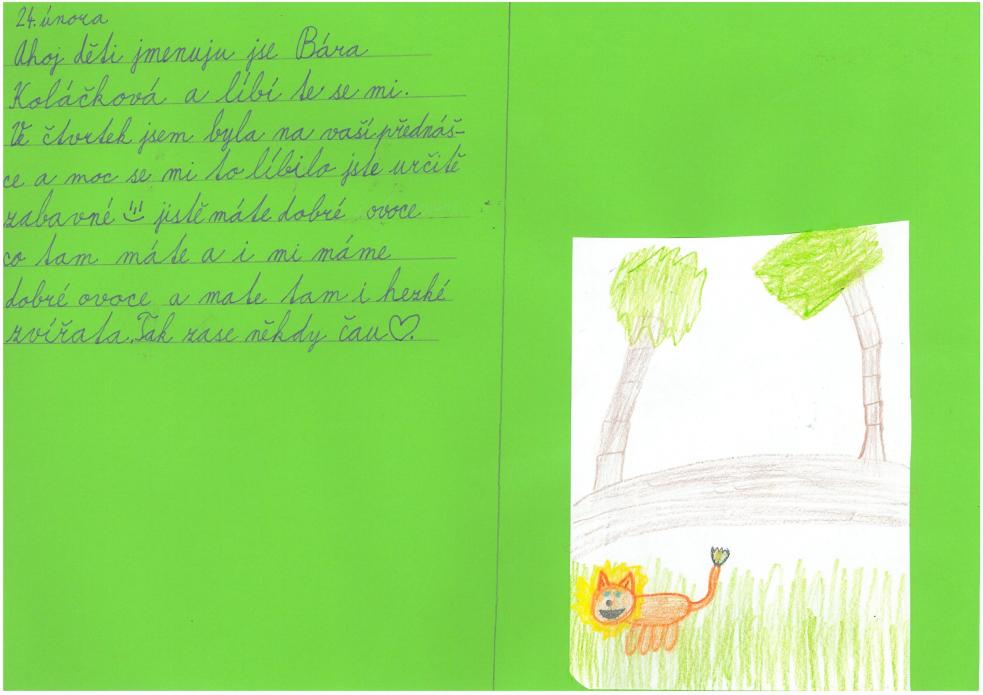 24. února
Ahoj děti jmenuju jse Bára
Koláčková a líbí te se mi.
Ve čtvrtek jsem byla na vaší přednáš-
ce a moc se mi to líbilo jste určitě
zabavné jistě máte dobré ovoce
co tam máte a i mi máme
dobré ovoce a mate tam i hezké
zvířata. Tak zase někdy čau♡.